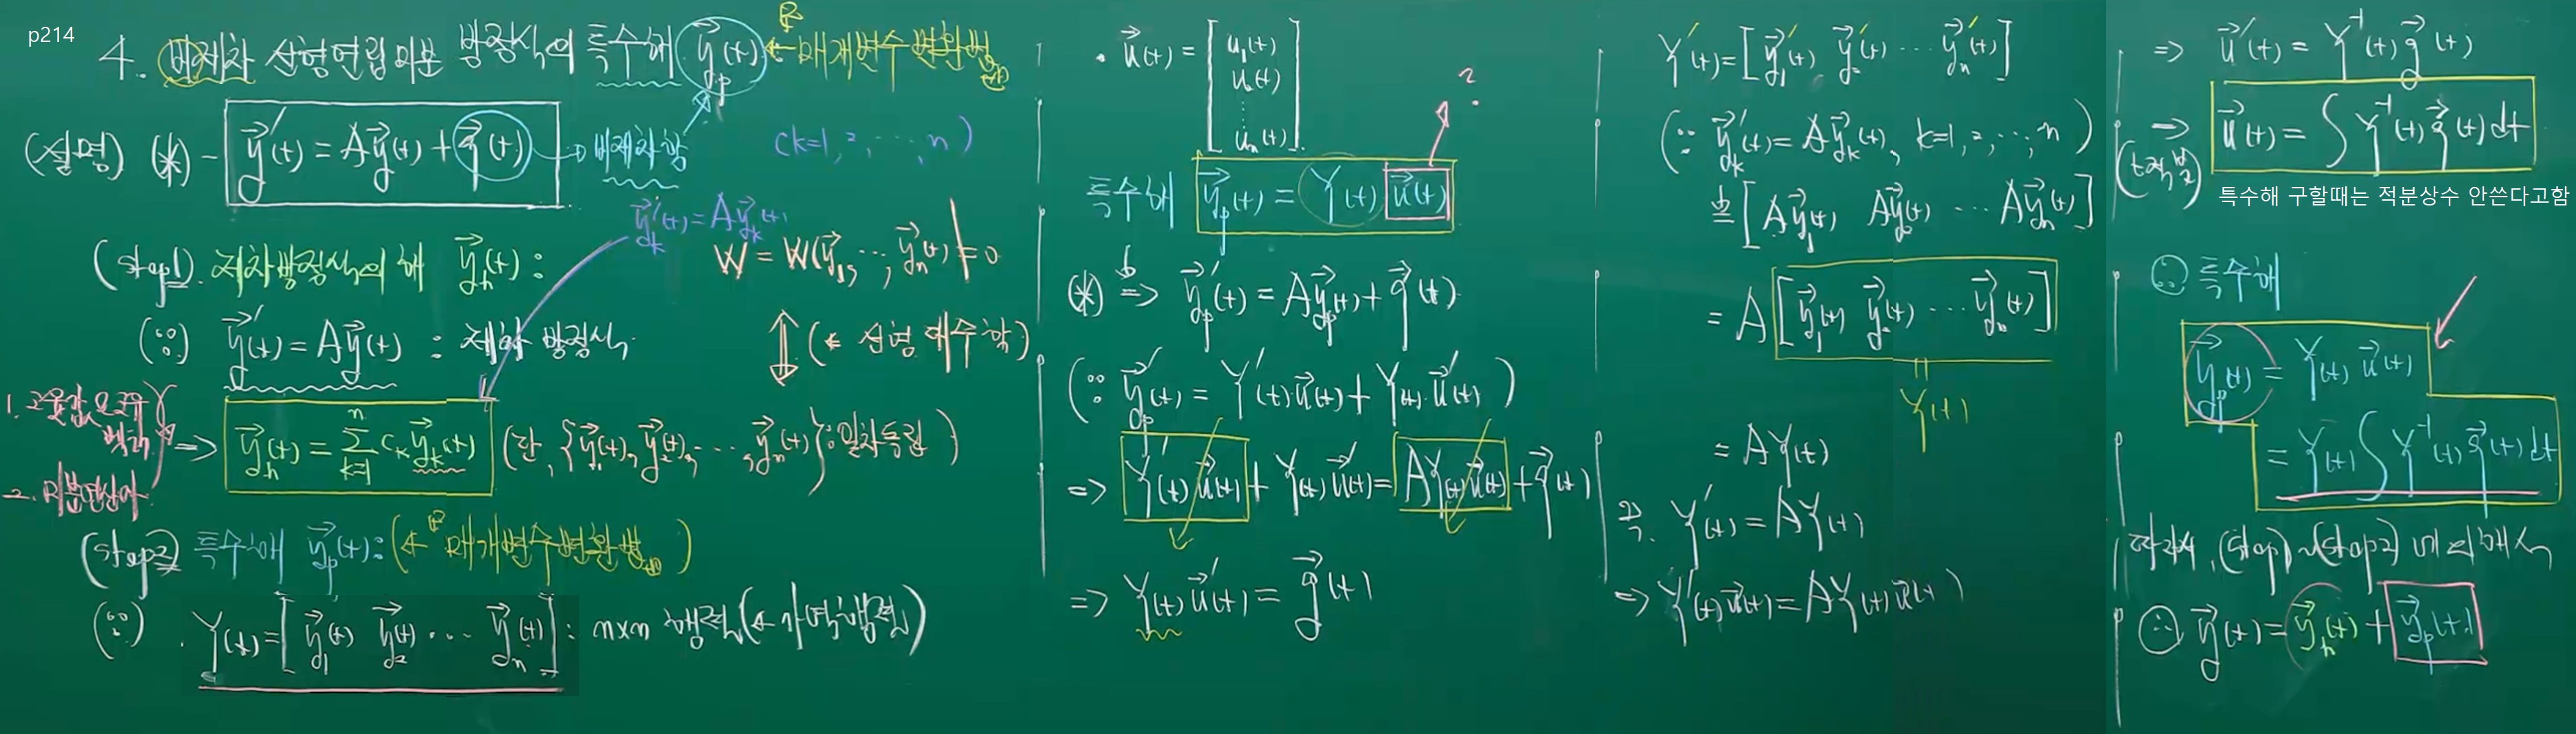 p214
4. 비제차 선형연립미분 방정식의 특수해 y⃗p(t) ← 매개변수 변환법
(설명) (*) - y⃗'(t) = Ay⃗(t) + g⃗(t) → 비제차항
(k=1, 2, ..., n)
y⃗k'(t) = Ay⃗k(t)
(step1). 제차방정식의 해 y⃗h(t) :
W = W(y⃗1, ..., y⃗n(t)) ≠ 0
(∵) y⃗'(t) = Ay⃗(t) : 제차 방정식
⇕ (← 선형대수학)
1. 고유값, 고유벡터
2. 미분연산자
⇒ y⃗h(t) = Σ_{k=1}^{n} ck y⃗k(t) (단, {y⃗1(t), y⃗2(t), ..., y⃗n(t)} : 일차독립)
(step2) 특수해 y⃗p(t) : (← 매개변수변환법)
(∵) . Y(t) = [y⃗1(t) y⃗2(t) ... y⃗n(t)] : n×n 행렬 (← 가역행렬)
. u⃗(t) = [u1(t)
u2(t)
⋮
un(t)]
?
특수해 y⃗p(t) = Y(t) u⃗(t)
(*) ⇒ y⃗p'(t) = Ay⃗p(t) + g⃗(t)
(∵ y⃗p'(t) = Y'(t) u⃗(t) + Y(t) u⃗'(t))
⇒ Y'(t) u⃗(t) + Y(t) u⃗'(t) = AY(t) u⃗(t) + g⃗(t)
⇒ Y(t) u⃗'(t) = g⃗(t)
Y'(t) = [y⃗1'(t) y⃗2'(t) ... y⃗n'(t)]
(∵ y⃗k'(t) = Ay⃗k(t), k=1, 2, ..., n)
= [Ay⃗1(t) Ay⃗2(t) ... Ay⃗n(t)]
= A [y⃗1(t) y⃗2(t) ... y⃗n(t)]
Y(t)
= AY(t)
즉. Y'(t) = AY(t)
⇒ Y'(t) u⃗(t) = AY(t) u⃗(t)
⇒ u⃗'(t) = Y⁻¹(t) g⃗(t)
⇒ u⃗(t) = ∫ Y⁻¹(t) g⃗(t) dt
특수해 구할때는 적분상수 안쓴다고함
∴ 특수해
y⃗p(t) = Y(t) u⃗(t)
= Y(t) ∫ Y⁻¹(t) g⃗(t) dt
따라서, (step1) ~ (step2) 에 의해서
∴ y⃗(t) = y⃗h(t) + y⃗p(t)